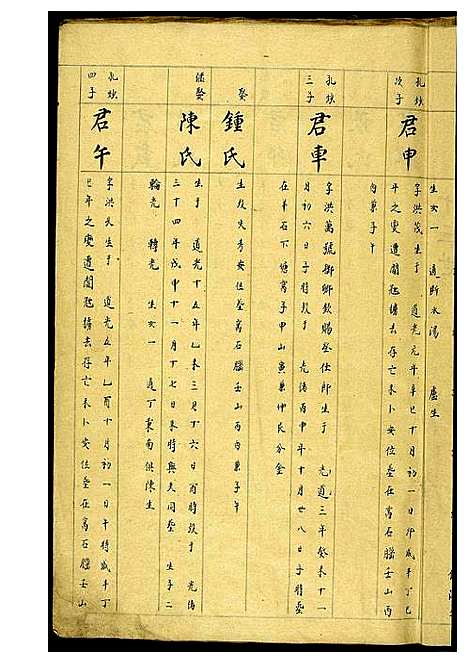 生女一 適斷水湯 盧生
孔煥
次子
君申
字洪茂生于 道光元年辛巳十月初一日卯咸丰丁巳
年之變遭閩
去存亡未卜安位塟在高石腦壬山丙
向兼子午
孔煥
三子
君車
字洪萬號
卿欽賜登仕郎生于 光道三年癸未十一
月初六日子時歿于 光緒丙申年十月廿八日子時塟
在羊石下塘高子甲山寅兼仲氏分金
娶
鍾氏
生歿失考安位塟高石腦壬山丙向兼子午
繼娶
陳氏
生于 道光十五年乙未三月十六日酉時歿于 光緒
三十四年戊申十一月十七日未時與夫同塟 生子二
輪光 轉光 生女一 適丁東南洪陳生
孔煥
四子
君午
字洪久生于 道光五年乙酉十月初一日午時咸丰丁
巳年之變遭閩
去存亡未卜安位塟在高石腦壬山